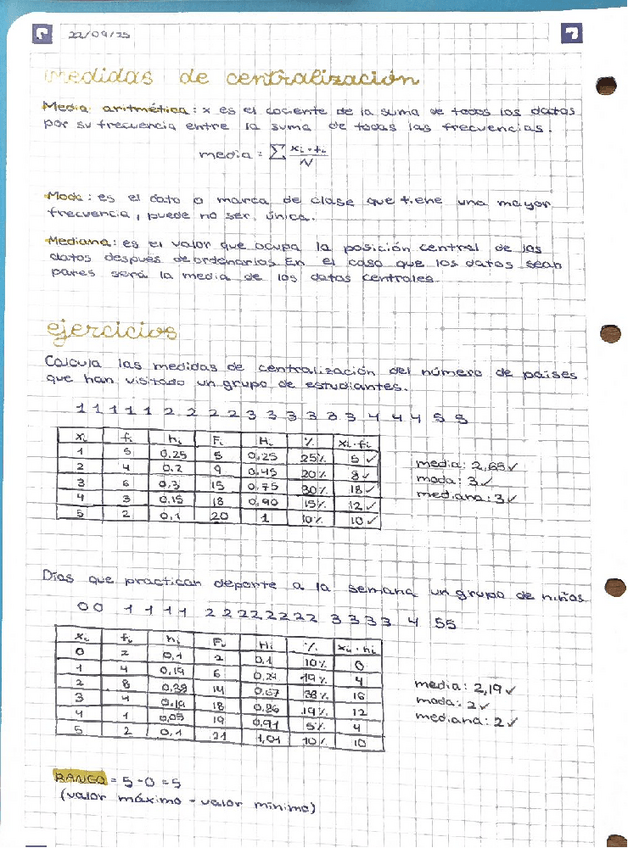 22/09/25
medidas de centralización
Media aritmética: x es el cociente de la suma de todos los datos
por su frecuencia entre la suma de todas las frecuencias.
media = Σ xi·fi / N
Moda: es el dato o marca de clase que tiene una mayor
frecuencia, puede no ser única.
Mediana: es el valor que ocupa la posición central de los
datos después de ordenarlos. En el caso que los datos sean
pares será la media de los datos centrales.
ejercicios
Calcula las medidas de centralización del número de países
que han visitado un grupo de estudiantes.
1 1 1 1 1 2 2 2 2 3 3 3 3 3 3 4 4 4 5 5
xi fi hi Fi Hi % xi·fi
1 5 0,25 5 0,25 25% 5 ✓
2 4 0,2 9 0,45 20% 8 ✓
3 6 0,3 15 0,75 30% 18 ✓
4 3 0,15 18 0,90 15% 12 ✓
5 2 0,1 20 1 10% 10 ✓
media: 2,65 ✓
moda: 3 ✓
mediana: 3 ✓
Días que practican deporte a la semana un grupo de niños
0 0 1 1 1 1 2 2 2 2 2 2 2 2 3 3 3 3 4 5 5
xi fi hi Fi Hi % xi·hi
0 2 0,1 2 0,1 10% 0
1 4 0,19 6 0,29 19% 4
2 8 0,38 14 0,67 38% 16
3 4 0,19 18 0,86 19% 12
4 1 0,05 19 0,91 5% 4
5 2 0,1 21 1,01 10% 10
media: 2,19 ✓
moda: 2 ✓
mediana: 2 ✓
RANGO = 5 - 0 = 5
(valor máximo - valor mínimo)